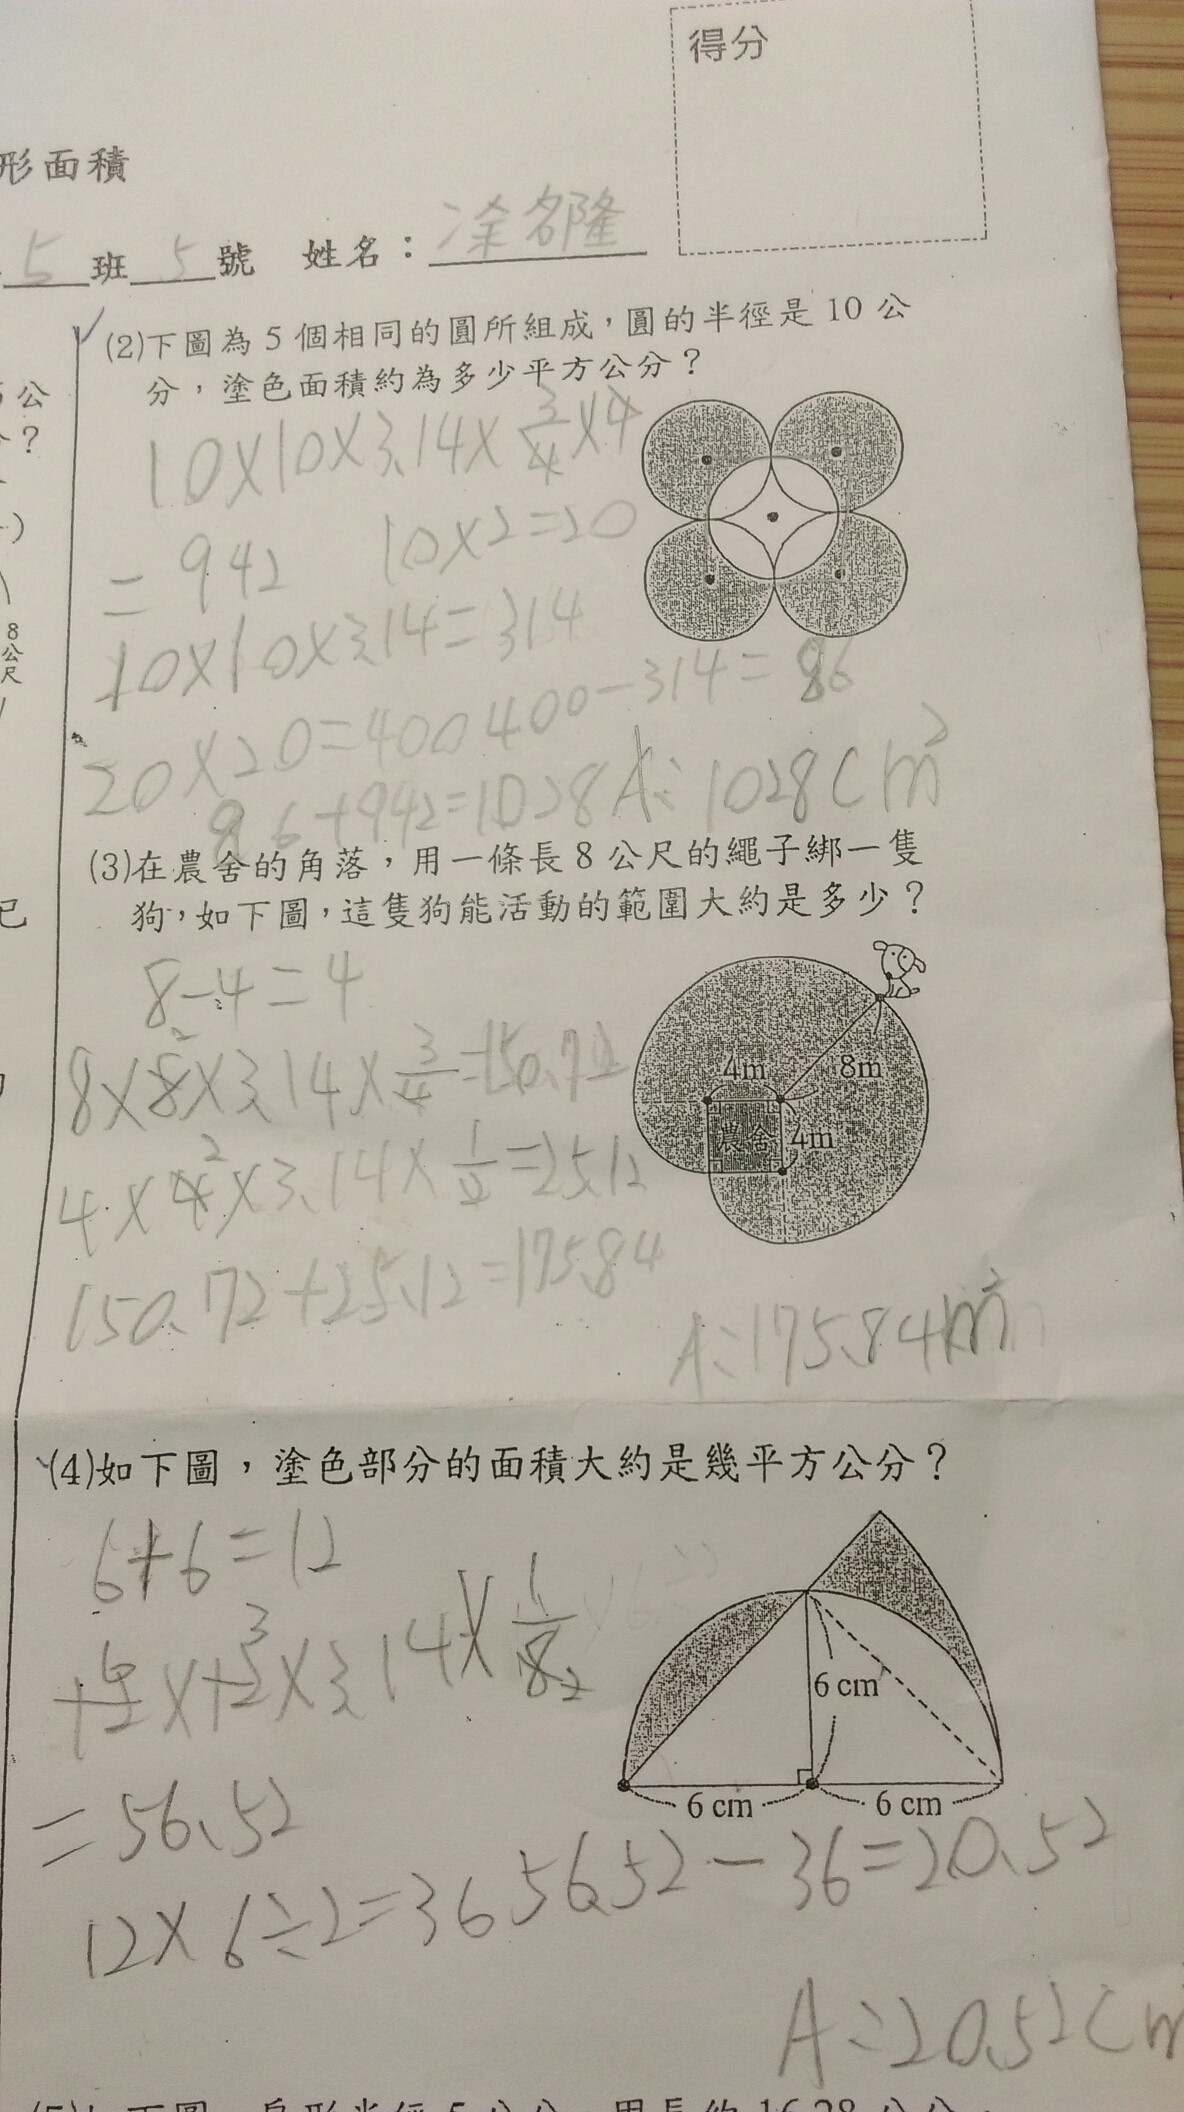 得分
形面積
5班5號 姓名：涂名隆
(2)下圖為5個相同的圓所組成，圓的半徑是10公
分，塗色面積約為多少平方公分？
10×10×3.14×3/4×4
=942 10×2=20
10×10×3.14=314
20×20=400 400-314=86
86+942=1028 A:1028cm²
公
？
8公尺
(3)在農舍的角落，用一條長8公尺的繩子綁一隻
狗，如下圖，這隻狗能活動的範圍大約是多少？
8-4=4
8×8×3.14×3/4=150.72
4×4×3.14×1/2=25.12
150.72+25.12=175.84
A:175.84m²
4m
8m
農舍
4m
(4)如下圖，塗色部分的面積大約是幾平方公分？
6+6=12
12×12×3.14×1/8
=56.52
12×6÷2=36 56.52-36=20.52
A:20.52cm
6 cm
6 cm
6 cm